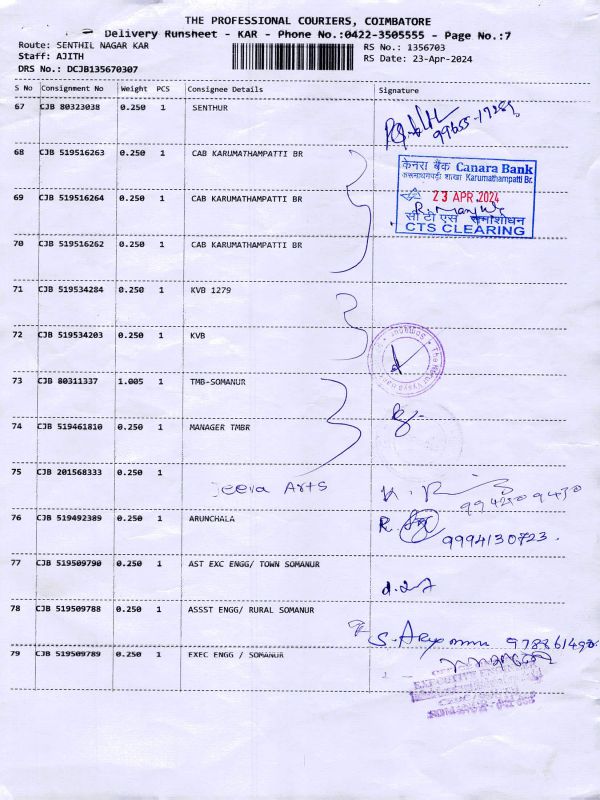 THE PROFESSIONAL COURIERS, COIMBATORE
Delivery Runsheet - KAR - Phone No.:0422-3505555 - Page No.:7
Route: SENTHIL NAGAR KAR
RS No.: 1356703
Staff: AJITH
RS Date: 23-Apr-2024
DRS No.: DCJB135670307
S No Consignment No Weight PCS Consignee Details Signature
67 CJB 80323038 0.250 1 SENTHUR
68 CJB 519516263 0.250 1 CAB KARUMATHAMPATTI BR
केनरा बैंक Canara Bank
करूमाथमपट्टी शाखा Karumathampatti Br.
69 CJB 519516264 0.250 1 CAB KARUMATHAMPATTI BR
23 APR 2024
सी टी एस समाशोधन
CTS CLEARING
70 CJB 519516262 0.250 1 CAB KARUMATHAMPATTI BR
71 CJB 519534284 0.250 1 KVB 1279
72 CJB 519534203 0.250 1 KVB
73 CJB 80311337 1.005 1 TMB-SOMANUR
74 CJB 519461810 0.250 1 MANAGER TMBR
75 CJB 201568333 0.250 1
Jeeva Arts
76 CJB 519492389 0.250 1 ARUNCHALA
9994130723
77 CJB 519509790 0.250 1 AST EXC ENGG/ TOWN SOMANUR
78 CJB 519509788 0.250 1 ASSST ENGG/ RURAL SOMANUR
79 CJB 519509789 0.250 1 EXEC ENGG / SOMANUR